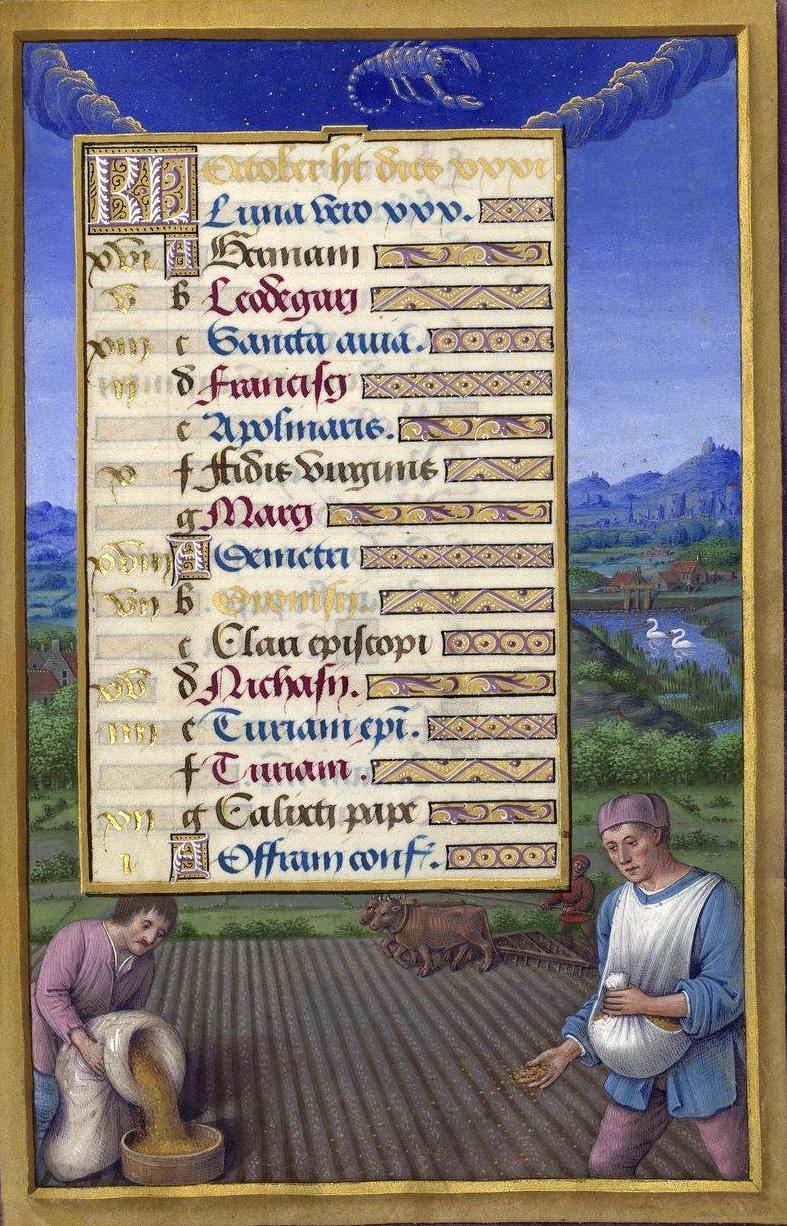 KL October ht dies xxxi
Luna vero xxx.
xvi A Germani
v b Leodegarj
xiii c Sancta auia.
ii d Franciscj
e Apolinaris.
x f ffidis virginis
g Marcj
xviii A Demetri
vii b Dyonisij.
c Clari episcopi
xv d Nichasij.
iiii e Turiani epi.
f Turiani.
xii g Calixtj pape
i A Offrani conf.